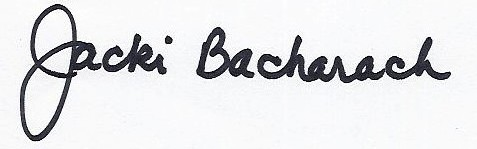 Jacki Bacharach